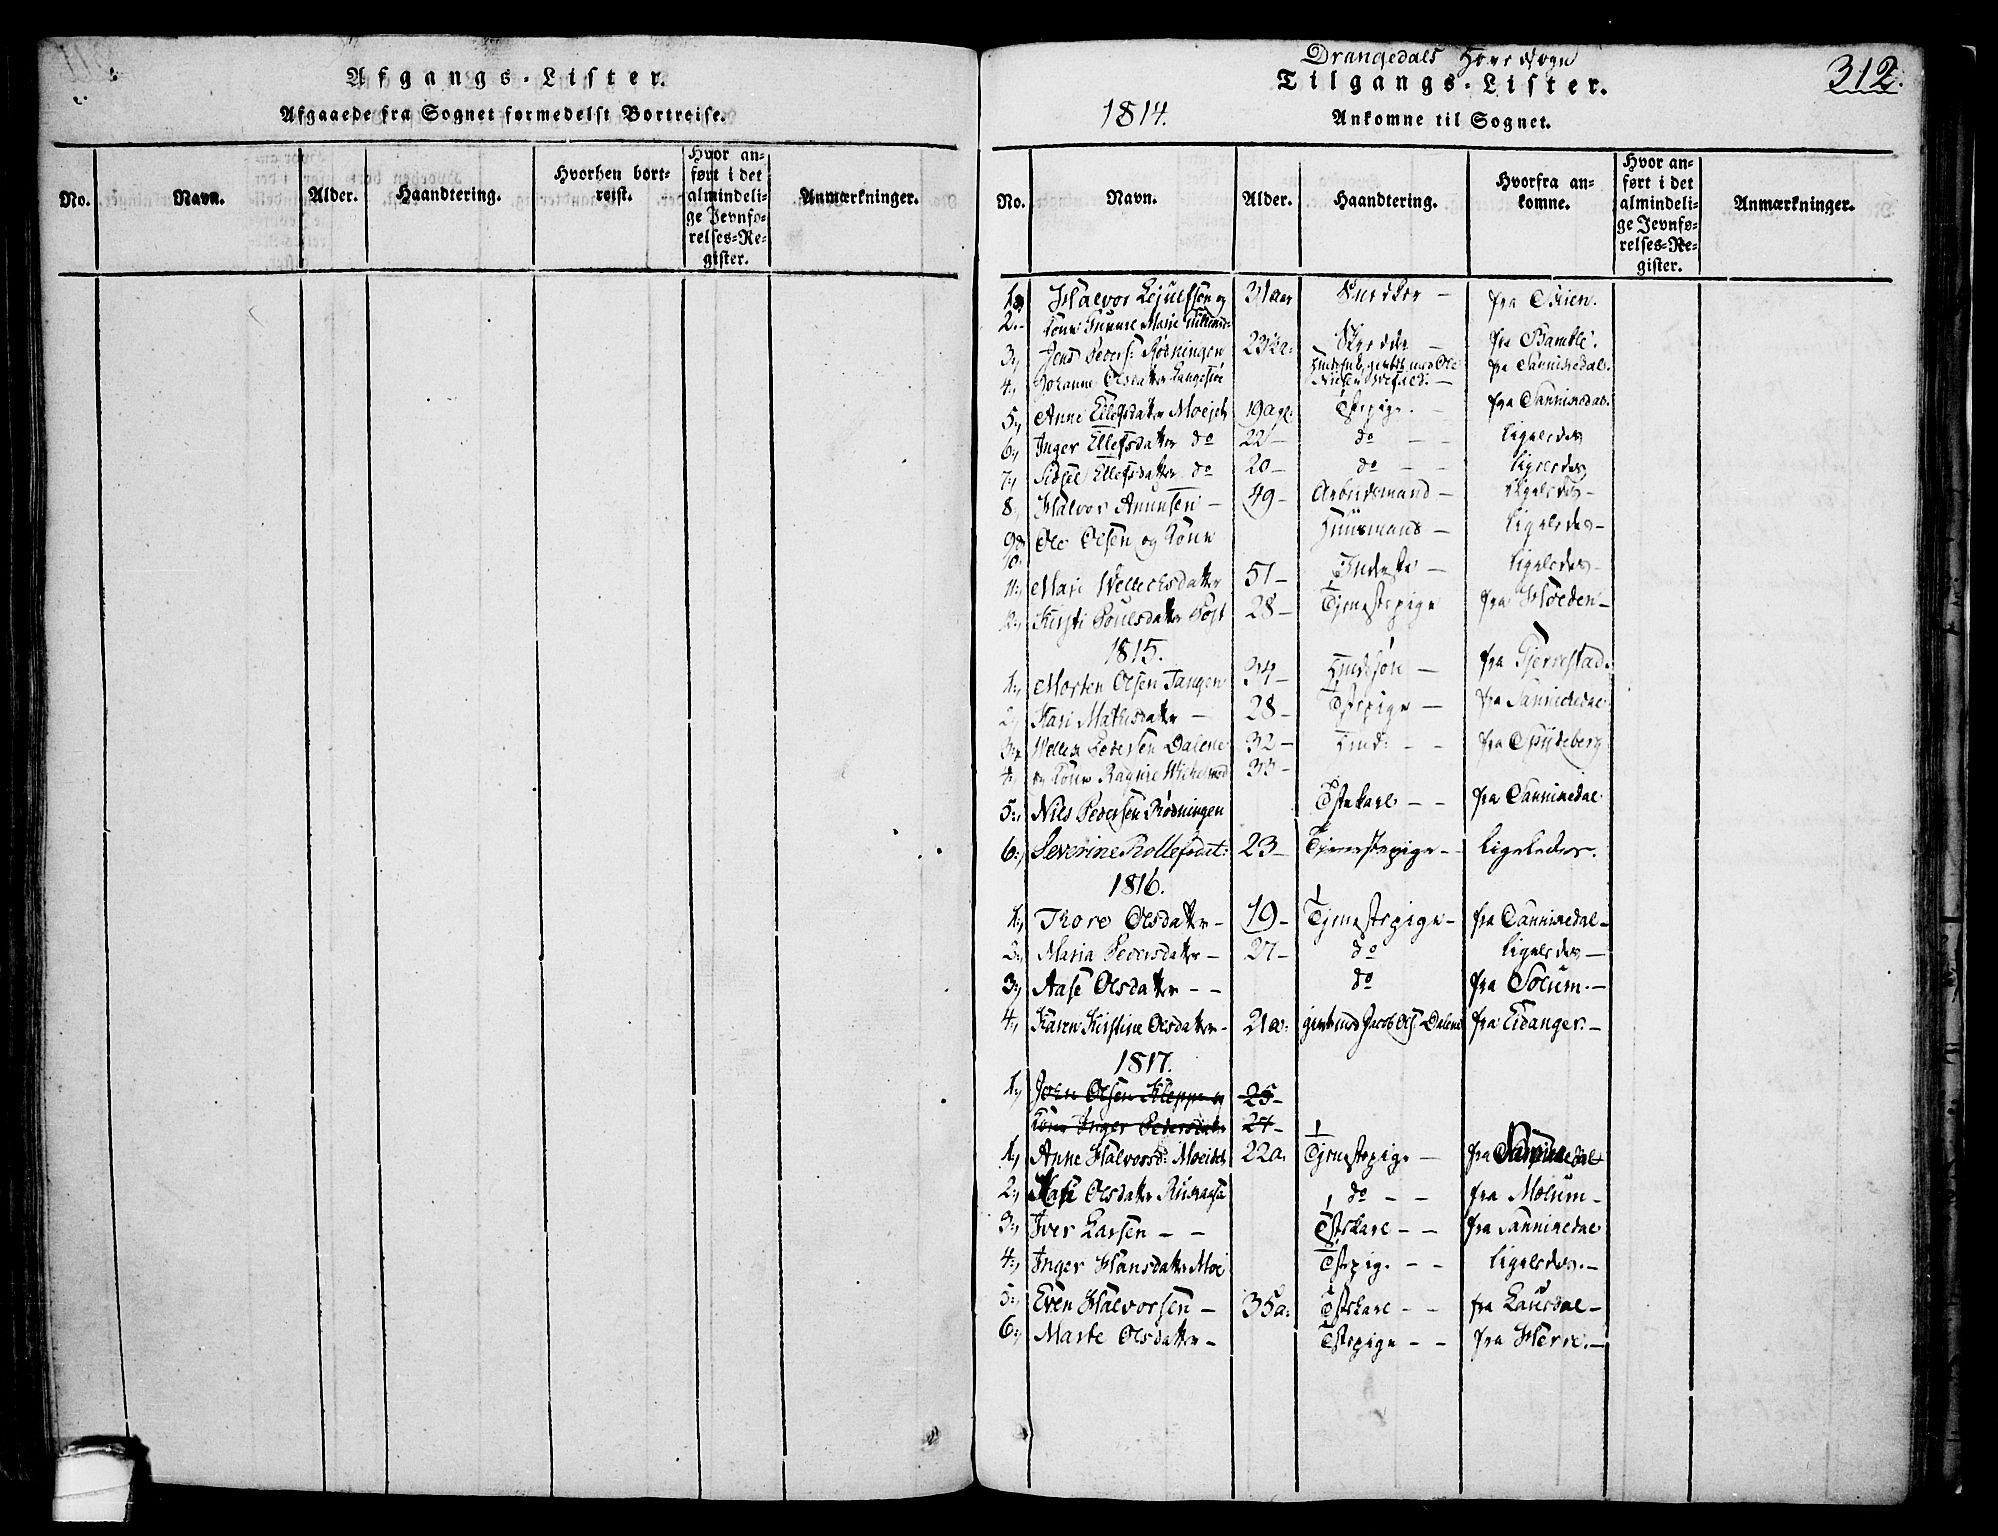 Afgangs-Lister.
Afgaaede fra Sognet formedelst Bortreise.
No. Navn. Alder. Haandtering. Hvorhen bortreist. Hvor anført i det almindelige Jevnførelses-Register. Anmærkninger.
Drangedals Hovedsogn
312.
Tilgangs-Lister.
1814. Ankomne til Sognet.
No. Navn. Alder. Haandtering. Hvorfra ankomne. Hvor anført i det almindelige Jevnførelses-Register. Anmærkninger.
1 Halvor Lejulfsen og 31 aar Snedker – fra Skien.
2. Kone Gunne Marie
3, Jens Peders: Rødningen 23½a: Skredder – fra Bamble.
4, Johanne Olsdatter Langesiøe gift med Ole Nielsen fra Sannikedal.
5, Anne Ellefsdatter Moejsch 19 a Tstepige. – fra Sannikedal.
6, Inger Ellefsdatter do 22– do – – ligeledes
7, Sidsel Ellefsdatter do 20– do – – ligeledes
8, Halvor Amunsen – 49– Arbeidsmand – ligeledes–
9 & 10. Ole Olsen og Kone Huusmand – ligeledes–
11, Mari Wellechsdatter 51– Inderste – ligeledes–
12, Kirsti Poulsdatter Tøft 28– Tjenestepige fra Hoeden–
1815.
1, Morten Olsen Tangen 34– – fra Gjerrestad.
2, Kari Mathisdatter – 28– Tstepige – fra Sannikedal
3, Wellek Pedersen Dalene 32– – – fra Spydeberg.
4, og Kone Ragnile 33–
5, Nils Pedersen Rødningen Tstekarl – – fra Sannikedal
6, Severine Rollefsdat: 23– Tjenestepige – – ligeledes.
1816.
1, Thore Olsdatter – 19– Tjenestepige – fra Sannikedal–
2, Maria Pedersdatter – 27– do ligeledes –
3, Aase Olsdatter – – do fra Solum. –
4, Karen Kirstine Olsdatter – 21a: gift med Jacob Ols: Dalene fra Eidanger. –
1817.
1, John Olsen Kleppe og 25–
Kone Inger Pedersdatter 24–
1, Anne Halvorsd: Moejsch 22a. Tjenestepige – fra Sannikedal
2, Aase Olsdatter do – – fra Molum –
3, Iver Larsen – – Tstekarl – – fra Sannikedal
4, Inger Hansdatter Moe Tstepige – – ligeledes. –
5, Even Halvorsen – 35a: Tstekarl – – fra Laurdal –
6, Marte Olsdatter – Tstepige – – fra Herre. –